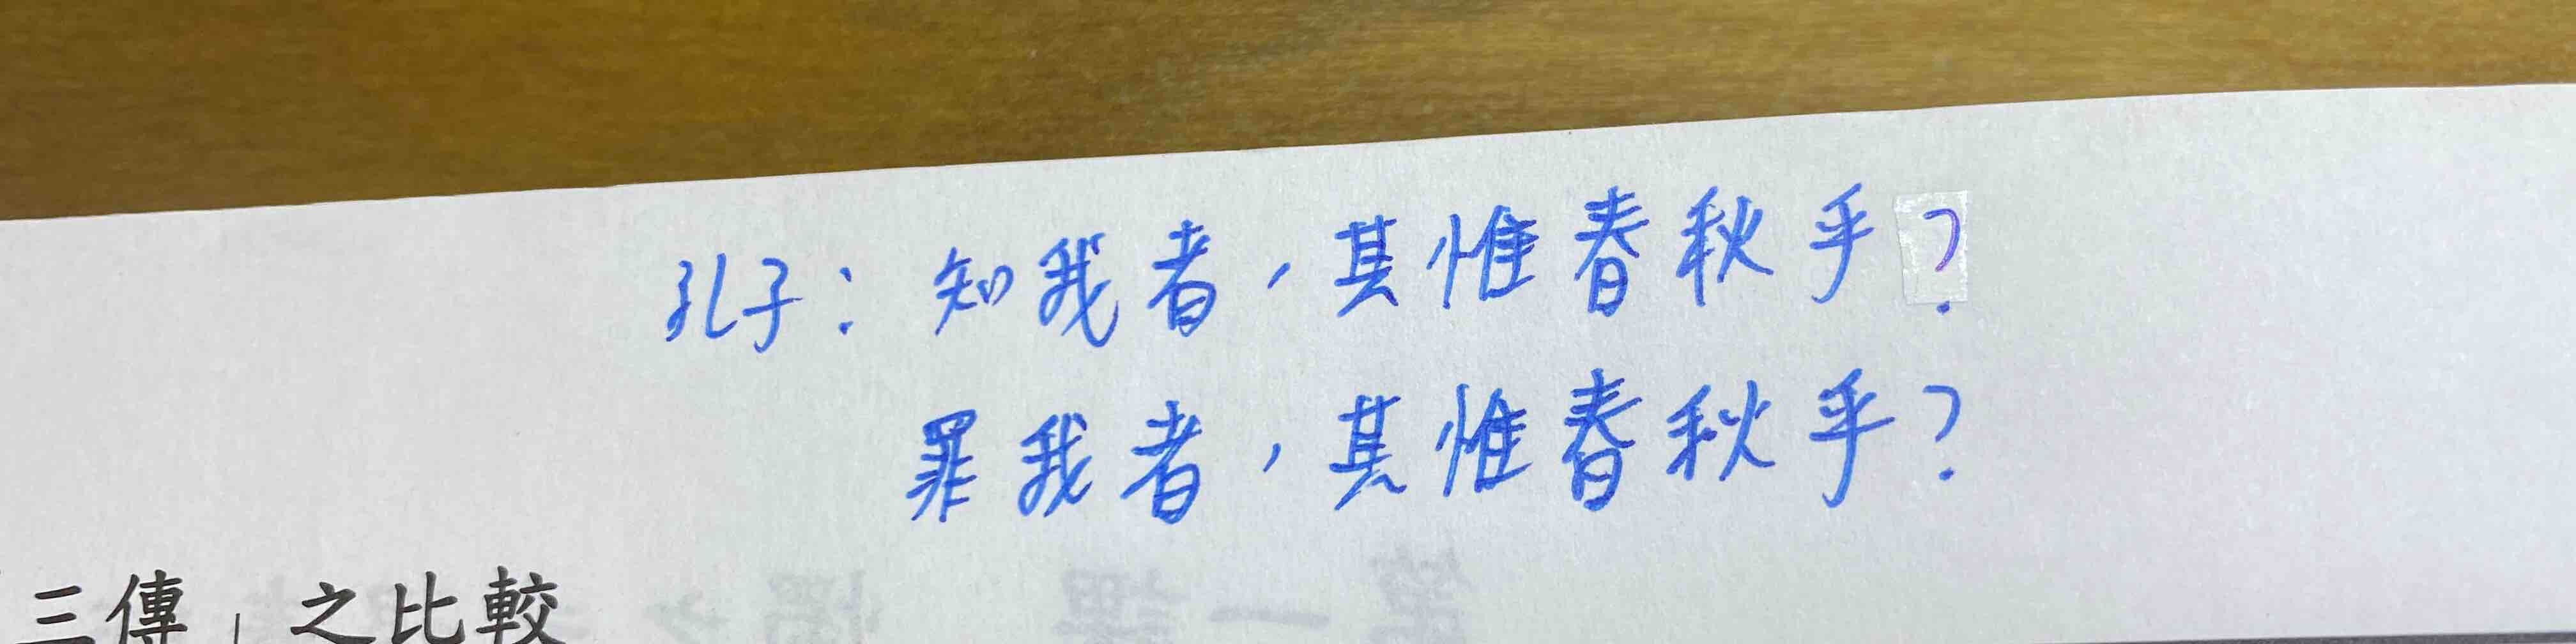 孔子：知我者，其惟春秋乎？
罪我者，其惟春秋乎？
三傳」之比較